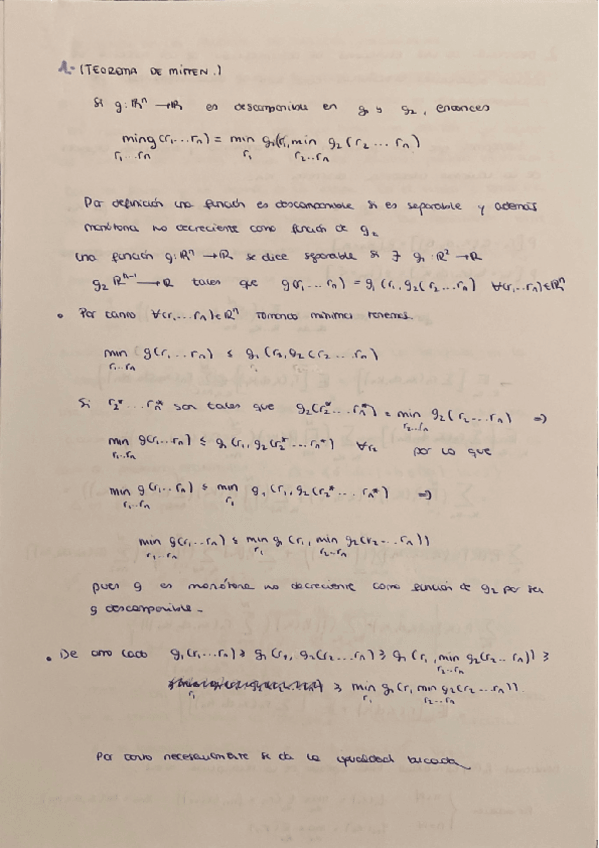 1.- (TEOREMA DE MITTEN.)
Si g: ℝⁿ → ℝ es descomponible en g₁ y g₂, entonces
min g(r₁...rₙ) = min g₁(r₁, min g₂(r₂...rₙ)
r₁...rₙ r₁ r₂...rₙ
Por definición una función es descomponible si es separable y además
monótona no decreciente como función de g₂
Una función g: ℝⁿ → ℝ se dice separable si ∃ g₁: ℝ² → ℝ
g₂ ℝⁿ⁻¹ → ℝ tales que g(r₁...rₙ) = g₁(r₁, g₂(r₂...rₙ) ∀(r₁...rₙ)∈ℝⁿ
• Por tanto ∀(r₁...rₙ)∈ℝⁿ tomando mínimos tenemos.
min (g(r₁...rₙ) ≤ g₁(r₁, g₂(r₂...rₙ)
r₁...rₙ
Si r₂*...rₙ* son tales que g₂(r₂*...rₙ*) = min g₂(r₂...rₙ) =>
r₂...rₙ
min g(r₁...rₙ) ≤ g₁(r₁, g₂(r₂*...rₙ*) ∀r₂ por lo que
r₁...rₙ
min g(r₁...rₙ) ≤ min g₁(r₁, g₂(r₂*...rₙ*) =>
r₁...rₙ r₁
min g(r₁...rₙ) ≤ min g₁(r₁, min g₂(r₂...rₙ))
r₁...rₙ r₁ r₂...rₙ
pues g es monótona no decreciente como función de g₂ por ser
g descomponible.
• De otro lado g₁(r₁...rₙ) ≥ g₁(r₁, g₂(r₂...rₙ) ≥ g₁(r₁, min g₂(r₂...rₙ)) ≥
r₂...rₙ
≥ min g₁(r₁ min g₂(r₂...rₙ)).
r₁ r₂...rₙ
Por tanto necesariamente se da la igualdad buscada